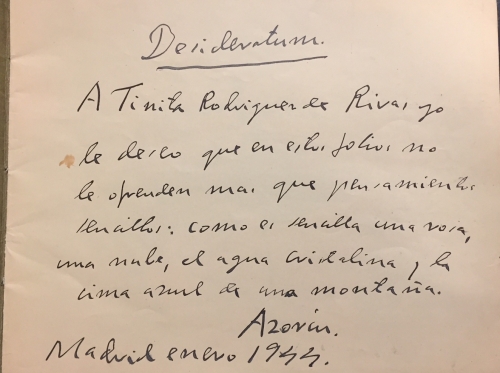 Desideratum.
A Tinita Rodriguez de Rivas yo
le deseo que en estos folios no
le ofrenden mas que pensamientos
sencillos: como es sencilla una rosa,
una nube, el agua cristalina y la
cima azul de una montaña.
Azorín.
Madrid enero 1944.